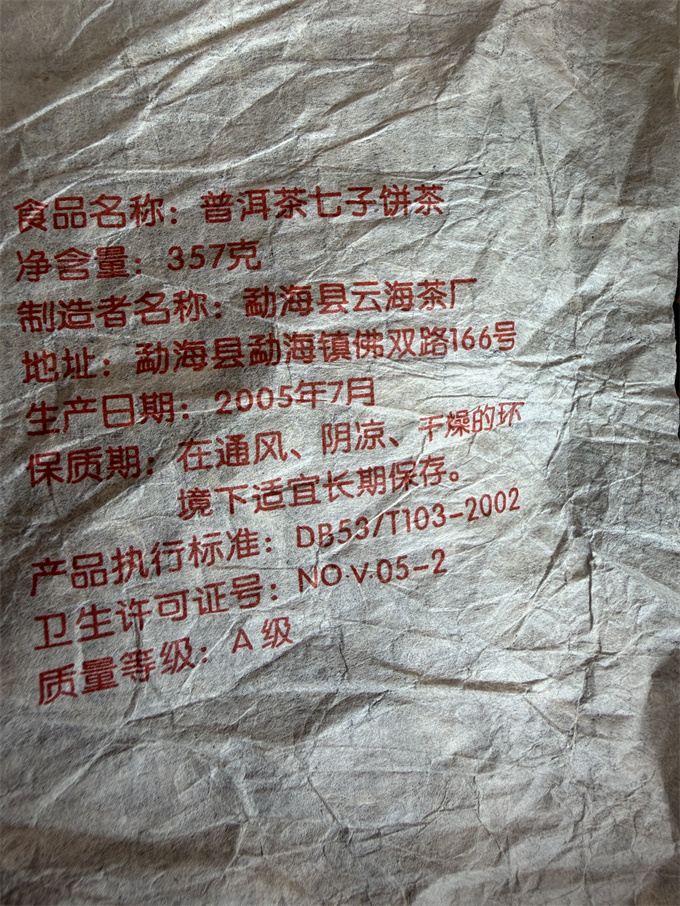 食品名称：普洱茶七子饼茶
净含量：357克
制造者名称：勐海县云海茶厂
地址：勐海县勐海镇佛双路166号
生产日期：2005年7月
保质期：在通风、阴凉、干燥的环
境下适宜长期保存。
产品执行标准：DB53/T103-2002
卫生许可证号：NO·V·05-2
质量等级：A级